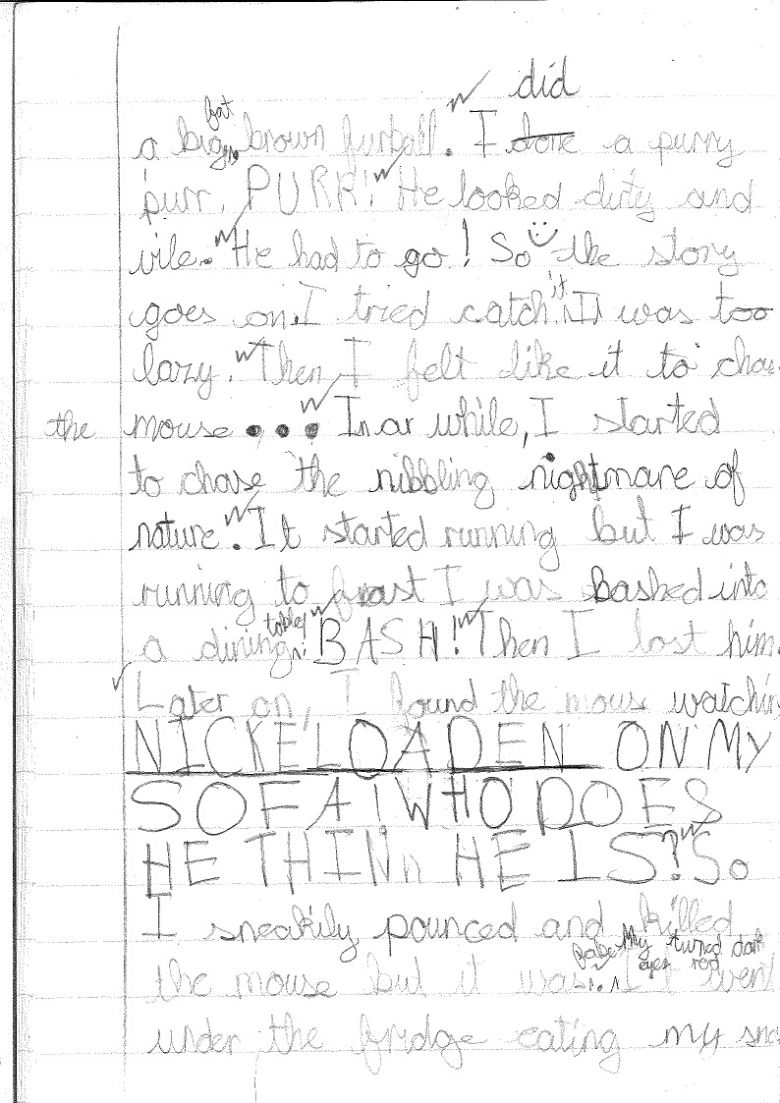 did
fat
a big, brown furball. I done a purry
purr. PURR! He looked dirty and
vile. He had to go! So the story
it
goes on. I tried catch. I was too
lazy. Then I felt like it to chas
the mouse... In ar while, I started
to chase the nibbling nightmare of
nature. It started running but I was
running to I was Bashed into
table!
a dining! BASH! Then I lost him.
Later on, I found the mous watchin
NICKELOADEN ON MY
SOFA! WHO DOES
HE THIN HE IS? So
I sneakily pounced and killed
My turned dark
eyes red
the mouse but it was... I went
under the fridge eating my sna